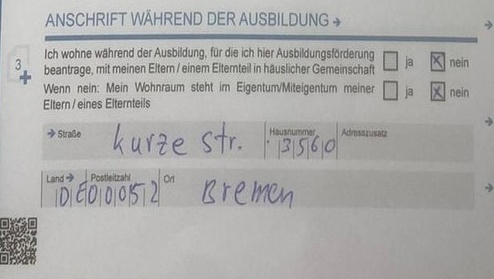 ANSCHRIFT WÄHREND DER AUSBILDUNG →
3
Ich wohne während der Ausbildung, für die ich hier Ausbildungsförderung
beantrage, mit meinen Eltern / einem Elternteil in häuslicher Gemeinschaft ja x nein
Wenn nein: Mein Wohnraum steht im Eigentum/Miteigentum meiner
Eltern / eines Elternteils ja x nein
→ Straße Hausnummer Adresszusatz
kurze str. 3560
Land → Postleitzahl Ort
DE00052 Bremen